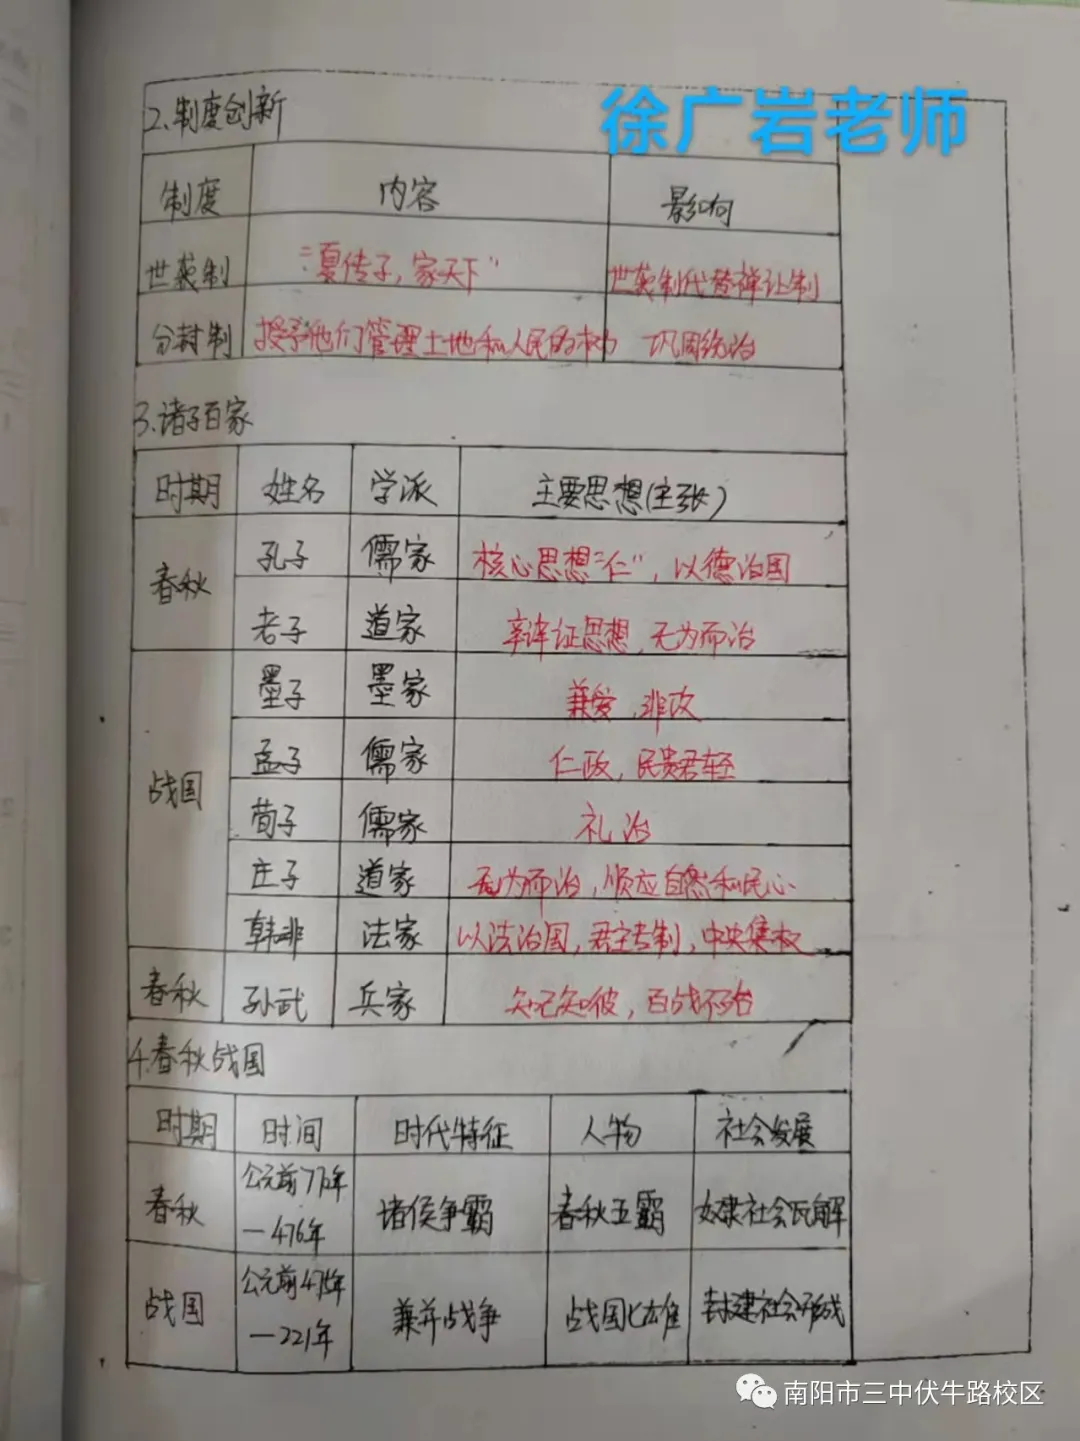 徐广岩老师
2.制度创新
制度 内容 影响
世袭制 “夏传子，家天下” 世袭制代替禅让制
分封制 授予他们管理土地和人民的权力 巩固统治
3.诸子百家
时期 姓名 学派 主要思想(主张)
春秋 孔子 儒家 核心思想“仁”，以德治国
老子 道家 辩证思想，无为而治
战国 墨子 墨家 兼爱，非攻
孟子 儒家 仁政，民贵君轻
荀子 儒家 礼治
庄子 道家 无为而治，顺应自然和民心
韩非 法家 以法治国，君主专制，中央集权
春秋 孙武 兵家 知己知彼，百战不殆
4.春秋战国
时期 时间 时代特征 人物 社会发展
春秋 公元前770年—476年 诸侯争霸 春秋五霸 奴隶社会瓦解
战国 公元前475年—221年 兼并战争 战国七雄 封建社会形成
南阳市三中伏牛路校区